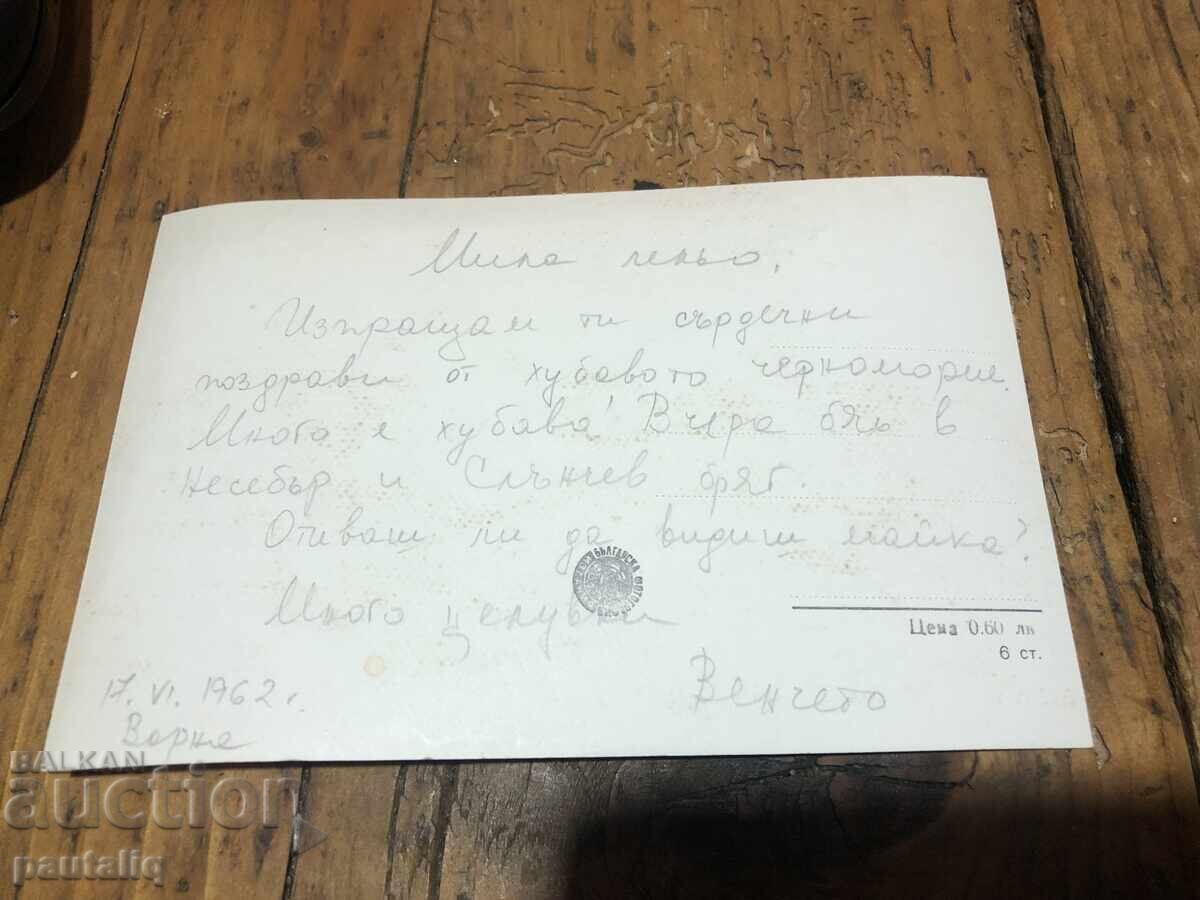 Мила леньо,
Изпращам ти сърдечни
поздрави от хубавото черноморие.
Много е хубаво! Вчера бях в
Несебър и Слънчев бряг.
Отиваш ли да видиш майка?
Много целувки
Венчето
17. VI. 1962 г.
Варна
БЪЛГАРСКА ФОТОГРАФИЯ
Цена 0.60 лв
6 ст.
BALKAN
auction
pautaliq